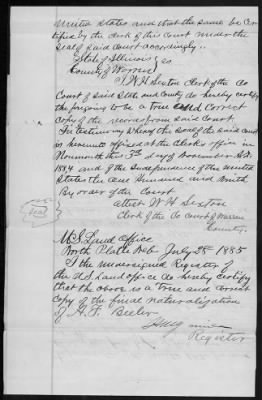 United States and that the same be cer
tified by the clerk of this Court under the
seal of said Court accordingly.
State of Illinois } ss
County of Warren
I W H Sexton Clerk of the Co
Court of said State and County do hereby certify
the forgoing to be a true and correct
copy of the record from said Court.
In testimony whereof the seal of the said court
is hereunto affixed at the Clerks office in
Monmouth this 5th day of November A.D.
1884 and of the Independence of the United
States the one Hundred and Ninth
By order of the Court
Seal
attest W H Sexton
Clerk of the Co Court of Warren
County.
U.S. Land Office
North Platte Neb July 28 1885
I the undersigned Register of
the U.S. Land office do hereby certify
that the above is a true and correct
Copy of the final naturalization
of H. F. Beeler
Register